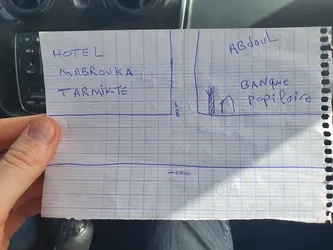 HOTEL
MABROUKA
TARMIKTE
ABDOUL
BANQUE
POPILAIRE